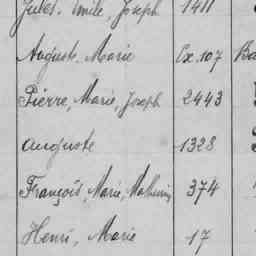 Jules, Emile, Joseph 1411
Auguste, Marie Ex. 107 Ba
Pierre, Marie, Joseph 2443
Auguste 1328
François, Marie, Mathurin 374
Henri, Marie 17